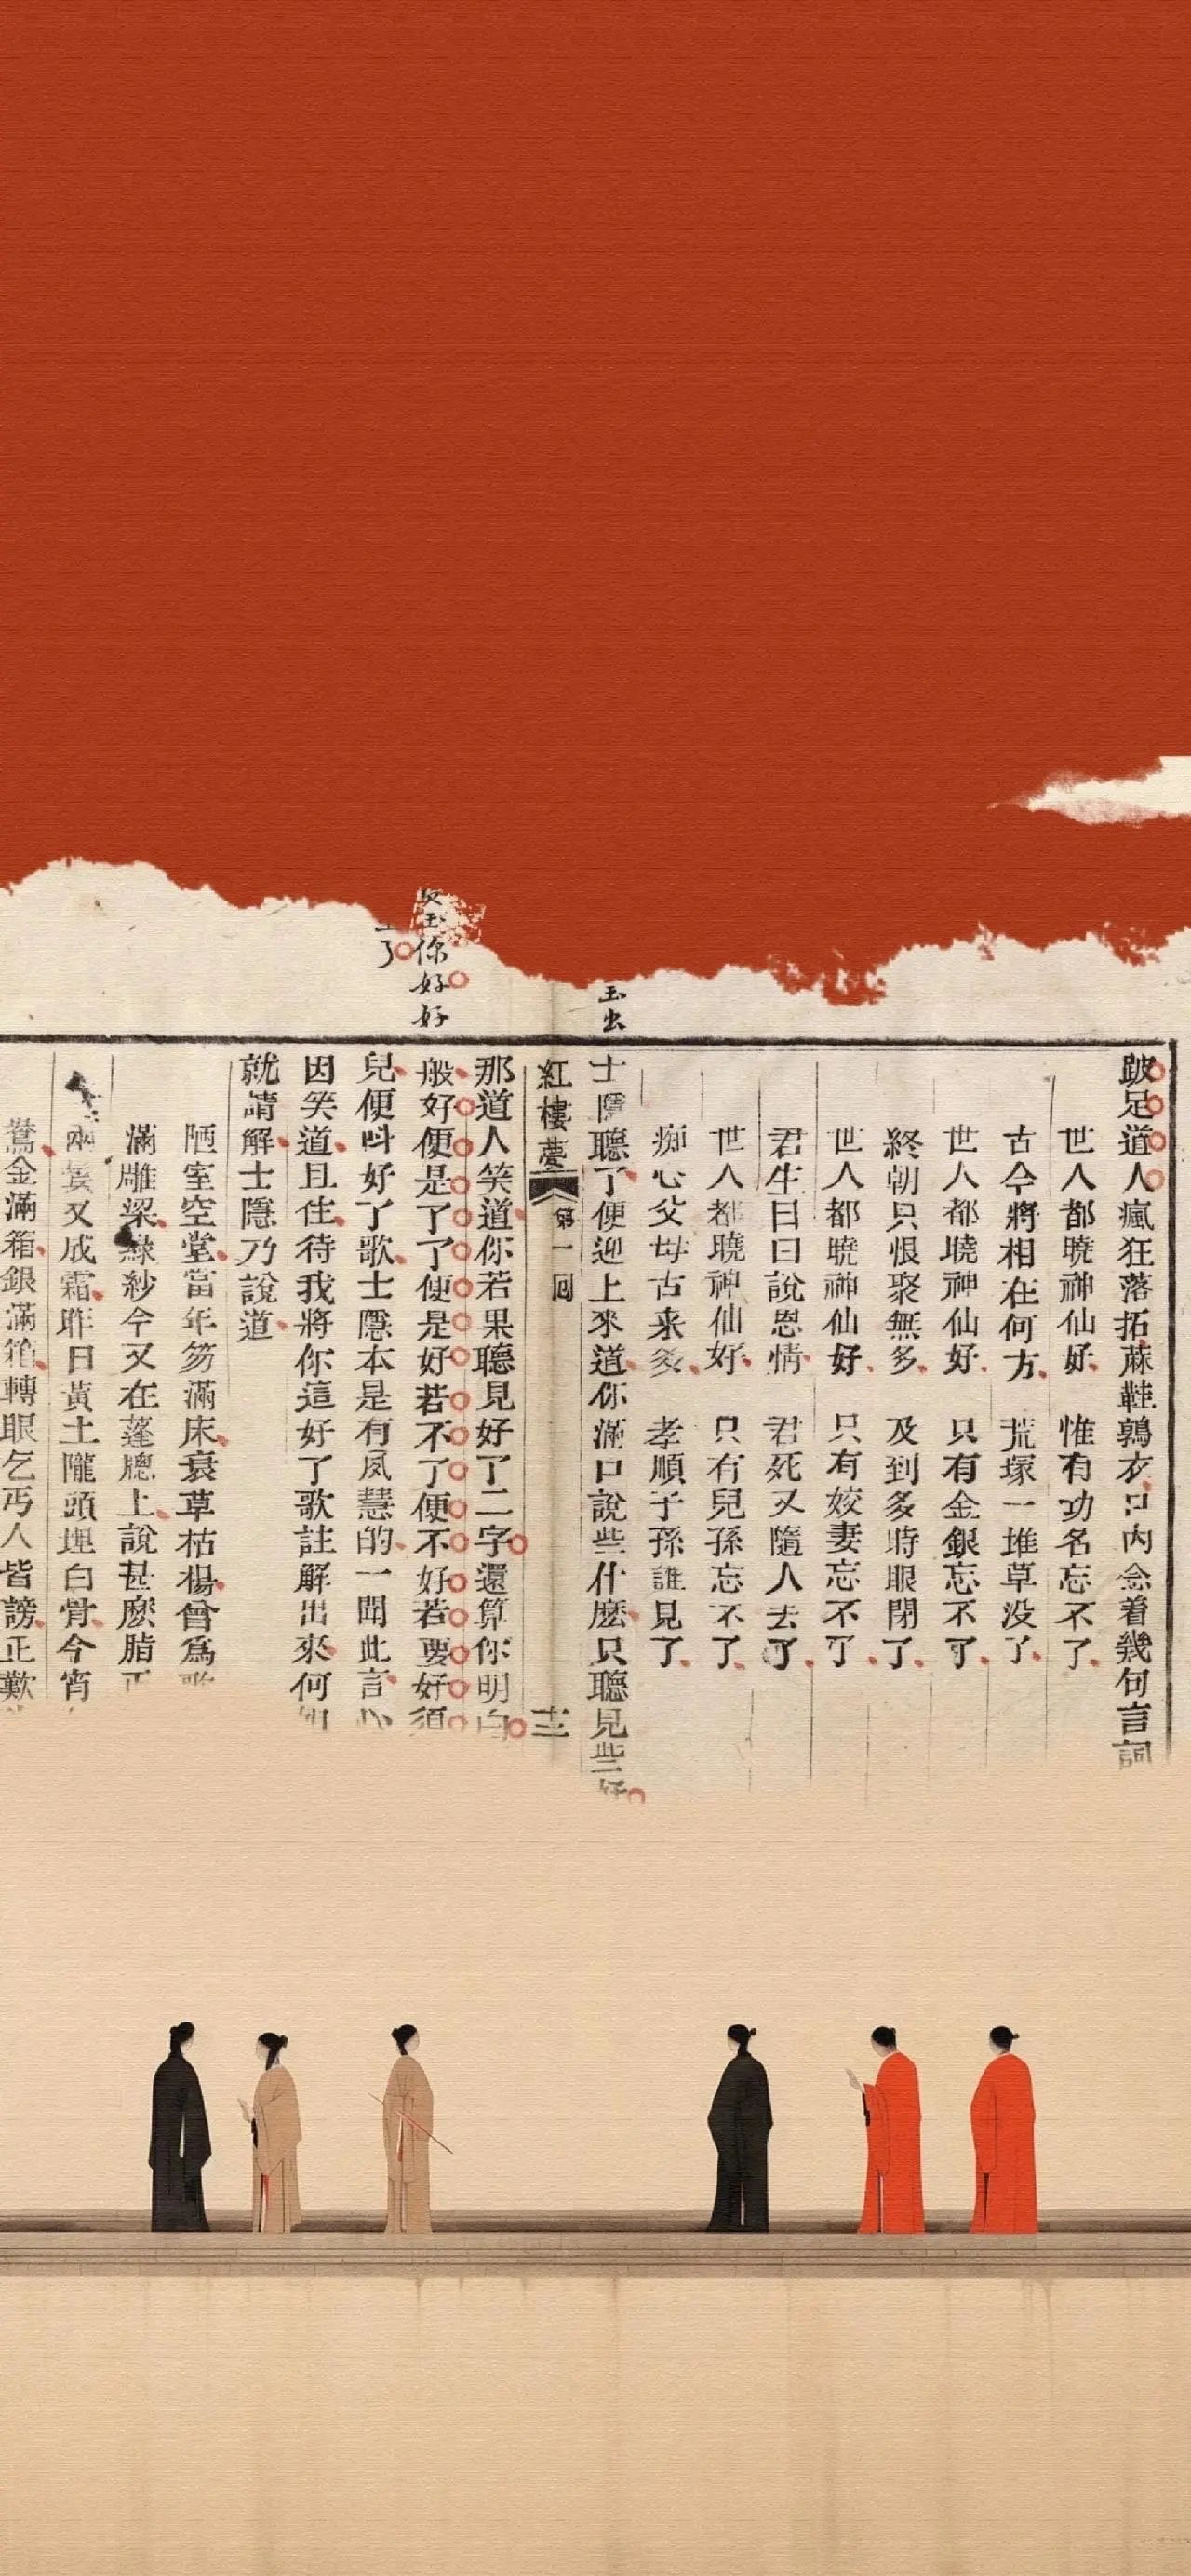 跛足道人瘋狂落拓蔴鞋鶉衣口内念着幾句言詞
世人都曉神仙好 惟有功名忘不了
古今將相在何方 荒塚一堆草没了
世人都曉神仙好 只有金銀忘不了
終朝只恨聚無多 及到多時眼閉了
世人都曉神仙好 只有姣妻忘不了
君生日日說恩情 君死又隨人去了
世人都曉神仙好 只有兒孫忘不了
痴心父母古来多 孝順子孫誰見了
士隱聽了便迎上來道你滿口說些什麽只聽見些好
玉出
紅樓夢 第一回 士
那道人笑道你若果聽見好了二字還算你明白
般好便是了了便是好若不了便不好若要好須
玉你好好
兒便呌好了歌士隱本是有夙慧的一聞此言心
了
因笑道且住待我將你這好了歌註解出來何如
就請解士隱乃說道
陋室空堂當年笏滿床衰草枯楊曾爲歌
滿雕梁緑紗今又在蓬牕上說甚麽脂正
兩鬓又成霜昨日黃土隴頭埋白骨今宵
鴦金滿箱銀滿箱轉眼乞丐人皆謗正歎